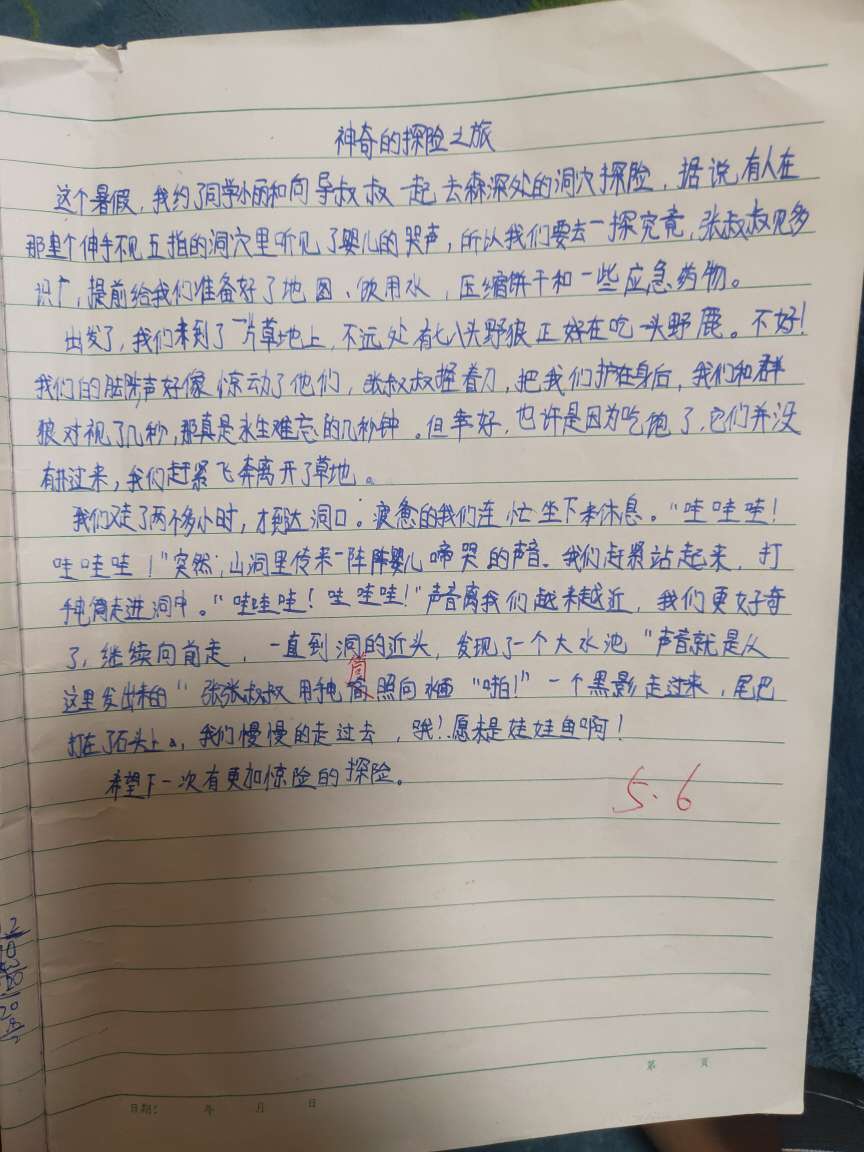 神奇的探险之旅
这个暑假，我约了同学小丽和向导叔叔一起去森深处的洞穴探险，据说有人在
那里个伸手不见五指的洞穴里听见了婴儿的哭声，所以我们要去一探究竟，张叔叔见多
识广，提前给我们准备好了地图、饮用水，压缩饼干和一些应急药物。
出发了，我们来到了一片草地上，不远处有七八头野狼正好在吃一头野鹿。不好！
我们的脚步声好像惊动了他们，张叔叔握着刀，把我们护在身后，我们和群
狼对视了几秒，那真是永生难忘的几秒钟。但幸好，也许是因为吃饱了，它们并没
有扑过来，我们赶紧飞奔离开了草地。
我们又走了两个多小时，才到达洞口。疲惫的我们连忙坐下来休息。“哇哇哇！
哇哇哇！”突然，山洞里传来一阵阵婴儿啼哭的声音。我们赶紧站起来，打
手电筒走进洞中。“哇哇哇！哇哇哇！”声音离我们越来越近，我们更好奇
了，继续向前走，一直到洞的近头，发现了一个大水池“声音就是从
这里发出来的“张张叔叔用手电筒照向水面“啪！”一个黑影走过来，尾巴
打在了石头上。我们慢慢的走过去，哦！原来是娃娃鱼啊！
希望下一次有更加惊险的探险。
5.6
日期： 年 月 日
第 页